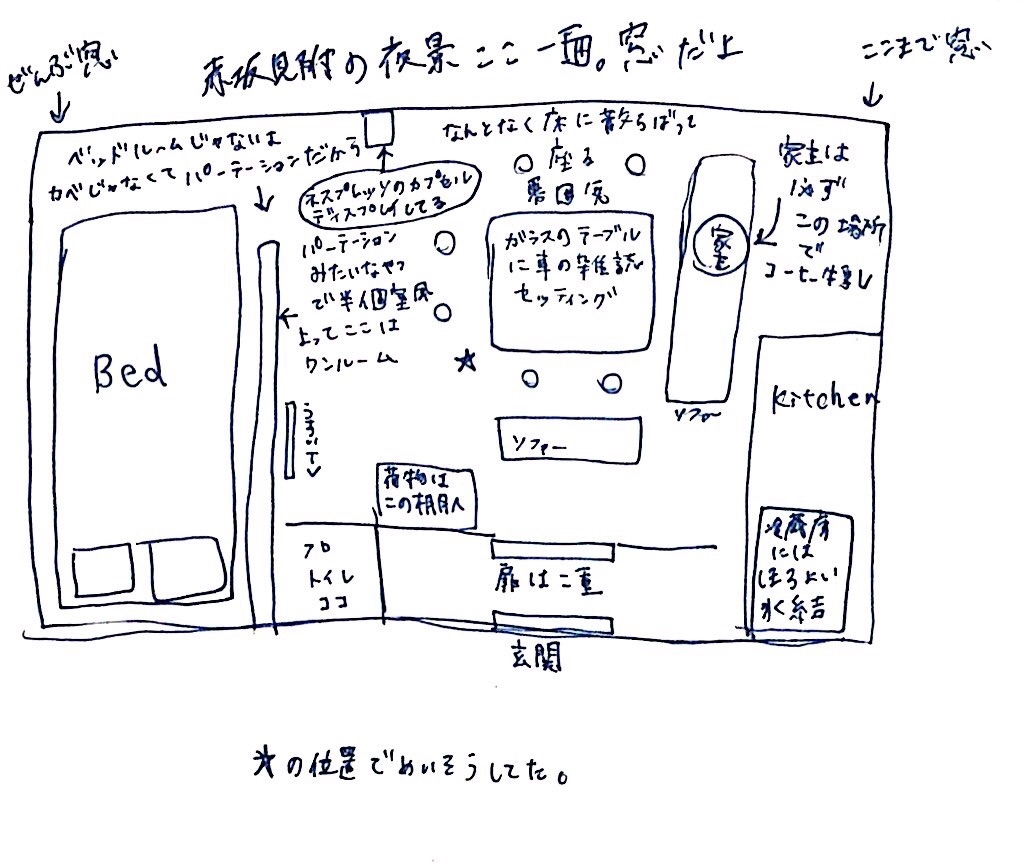 ぜんぶ窓
赤坂見附の夜景ここ一面。窓だよ
ここまで窓
ベッドルームじゃないは
カベじゃなくてパーテーションだから
ネスプレッソのカプセル
ディスプレイしてる
パーテーション
みたいなやつ
で半個室風
よってここは
ワンルーム
なんとなく床に散らばって
座る
雰囲気
ガラスのテーブル
に車の雑誌
セッティング
家主
家主は
必ず
この場所
で
コーヒー
ソファー
ソファー
Bed
Kitchen
荷物は
この
フロ
トイレ
ココ
扉は二重
玄関
冷蔵庫
には
ほろよい
氷結
★の位置でめいそうしてた。